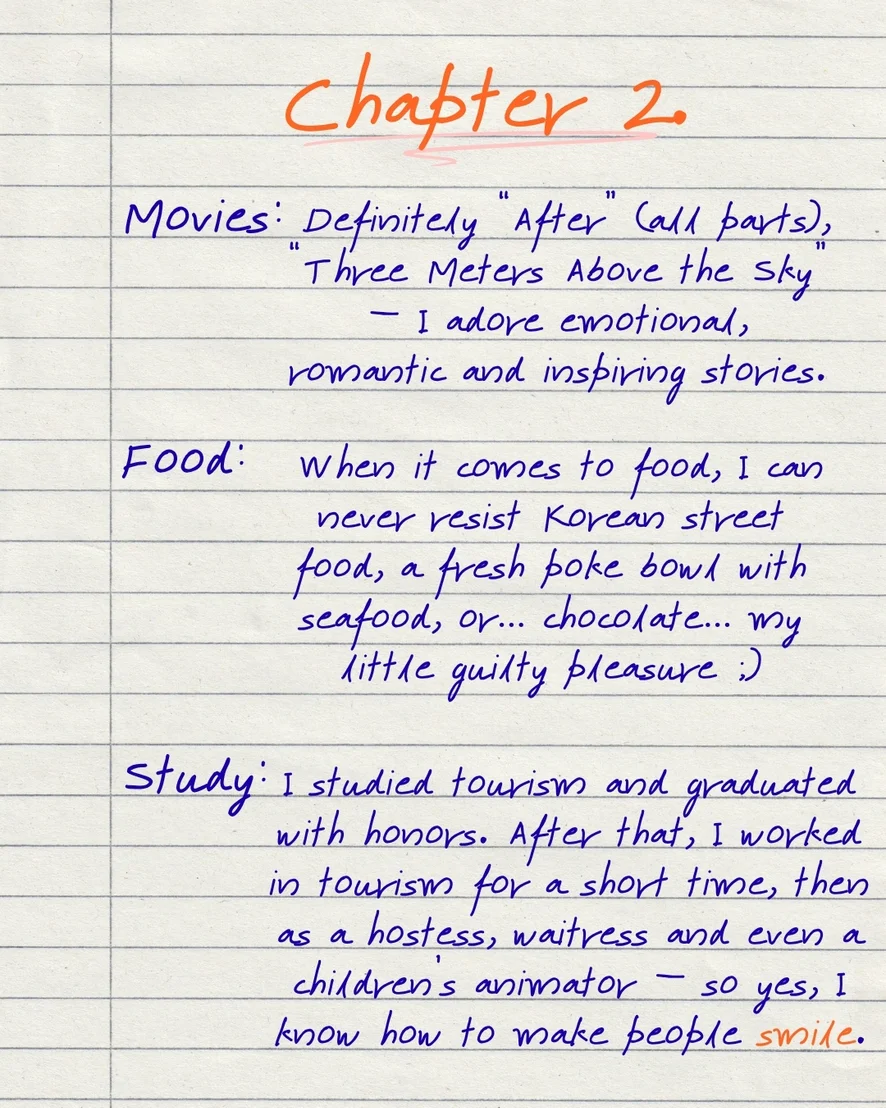 Chapter 2.
Movies: Definitely "After" (all parts),
"Three Meters Above the Sky"
— I adore emotional,
romantic and inspiring stories.
Food: When it comes to food, I can
never resist Korean street
food, a fresh poke bowl with
seafood, or... chocolate... my
little guilty pleasure ;)
Study: I studied tourism and graduated
with honors. After that, I worked
in tourism for a short time, then
as a hostess, waitress and even a
children's animator — so yes, I
know how to make people smile.